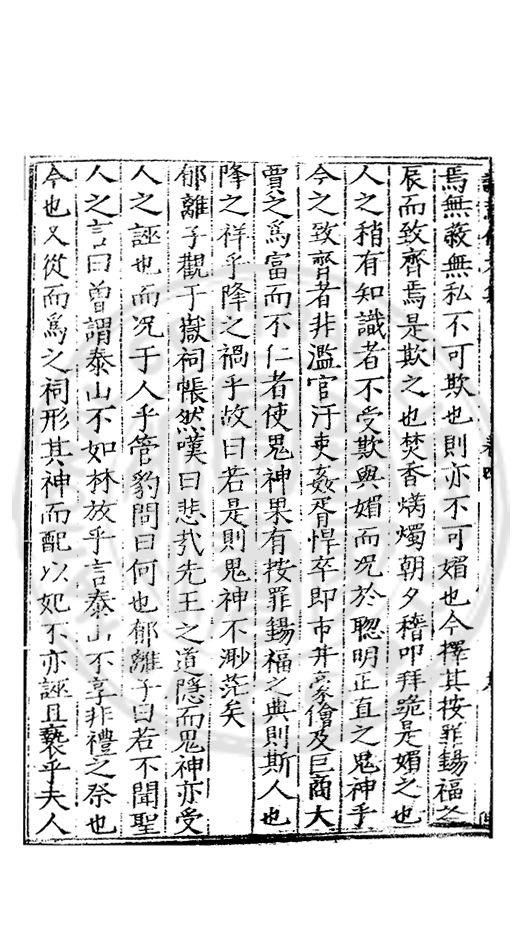 焉無蔽無私不可欺也則亦不可媚也今擇其按罪錫福之
辰而致齊焉是欺之也焚香爇燭朝夕稽叩拜跪是媚之也
人之稍有知識者不受欺與媚而况於聰明正直之鬼神乎
今之致齊者非濫官汙吏姦胥悍卒即市井豪儈及巨商大
賈之為富而不仁者使鬼神果有按罪錫福之典則斯人也
降之祥乎降之禍乎故曰若是則鬼神不渺茫矣
郁離子觀于嶽祠悵然嘆曰悲哉先王之道隱而鬼神亦受
人之誣也而况于人乎管豹問曰何也郁離子曰若不聞聖
人之言曰曾謂泰山不如林放乎言泰山不享非禮之祭也
今也又從而為之祠形其神而配以妃不亦誣且褻乎夫人